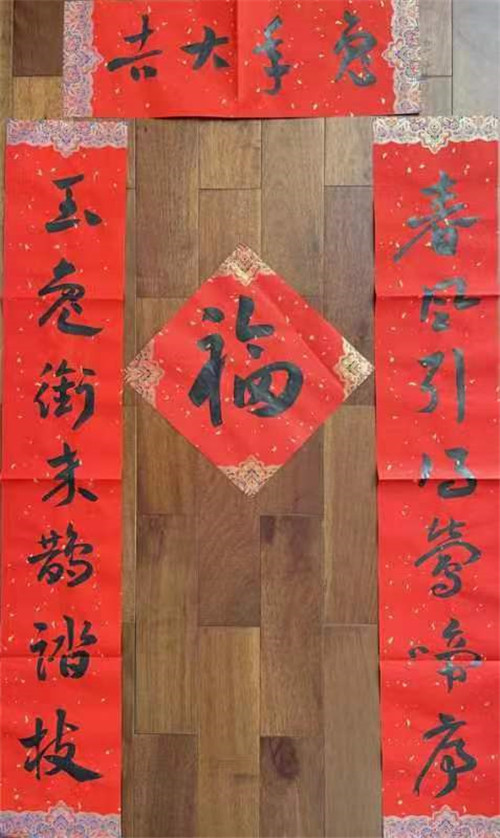 兔年大吉
春风引得莺啼序
玉兔衔来鹊踏枝
福